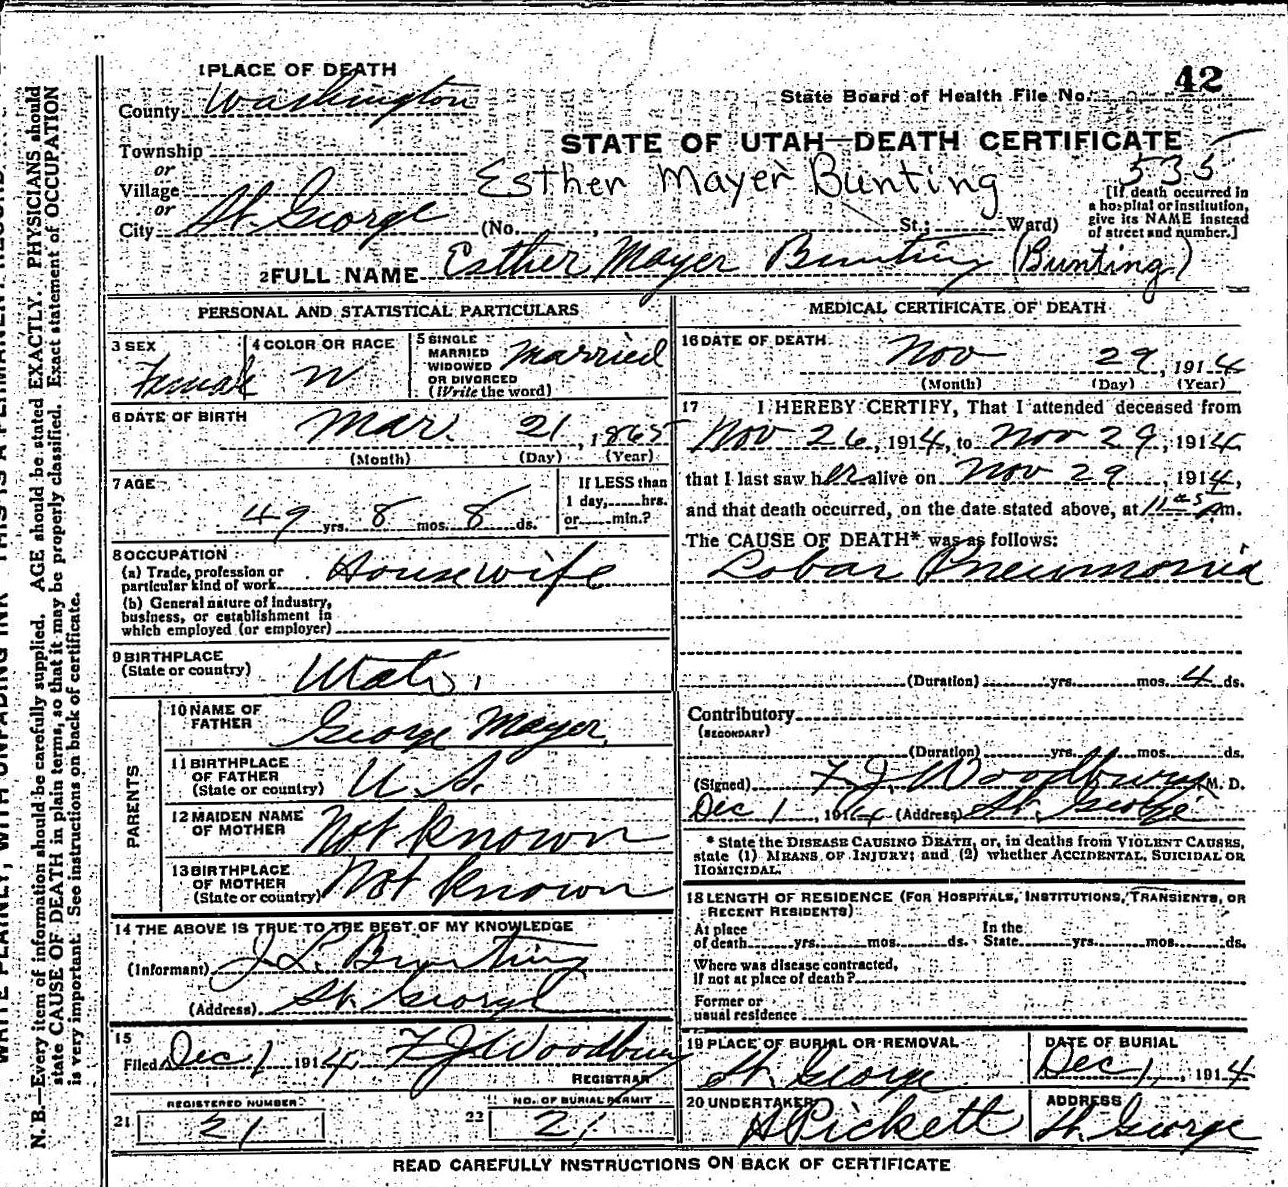 1 PLACE OF DEATH
County Washington
Township
or
Village
or
City St. George (No. , St.; Ward)
State Board of Health File No. 42
STATE OF UTAH—DEATH CERTIFICATE
535
Esther Mayer Bunting
[If death occurred in
a hospital or institution,
give its NAME instead
of street and number.]
2 FULL NAME Esther Mayer Bunting (Bunting)
PERSONAL AND STATISTICAL PARTICULARS
3 SEX
Female
4 COLOR OR RACE
W
5 SINGLE
MARRIED
WIDOWED
OR DIVORCED
(Write the word)
Married
6 DATE OF BIRTH
Mar. 21, 1865
(Month) (Day) (Year)
7 AGE
49 yrs. 8 mos. 8 ds.
If LESS than
1 day, hrs.
or min.?
8 OCCUPATION
(a) Trade, profession or
particular kind of work Housewife
(b) General nature of industry,
business, or establishment in
which employed (or employer)
9 BIRTHPLACE
(State or country)
Utah.
PARENTS
10 NAME OF
FATHER
George Mayer
11 BIRTHPLACE
OF FATHER
(State or country)
U. S.
12 MAIDEN NAME
OF MOTHER
Not Known
13 BIRTHPLACE
OF MOTHER
(State or country)
Not Known
14 THE ABOVE IS TRUE TO THE BEST OF MY KNOWLEDGE
(Informant) J. L. Bunting
(Address) St. George
15
Filed Dec 1 1914 F J Woodbury
REGISTRAR
REGISTERED NUMBER
21 21
NO. OF BURIAL PERMIT
22 21
MEDICAL CERTIFICATE OF DEATH
16 DATE OF DEATH
Nov 29, 1914
(Month) (Day) (Year)
17 I HEREBY CERTIFY, That I attended deceased from
Nov 26, 1914, to Nov 29, 1914
that I last saw her alive on Nov 29, 1914,
and that death occurred, on the date stated above, at 11 m.
The CAUSE OF DEATH* was as follows:
Lobar Pneumonia
(Duration) yrs. mos. 4 ds.
Contributory
(SECONDARY)
(Duration) yrs. mos. ds.
(Signed) F. J. Woodbury M. D.
Dec 1, 1914 (Address) St. George
* State the DISEASE CAUSING DEATH, or, in deaths from VIOLENT CAUSES,
state (1) MEANS OF INJURY; and (2) whether ACCIDENTAL, SUICIDAL OR
HOMICIDAL.
18 LENGTH OF RESIDENCE (FOR HOSPITALS, INSTITUTIONS, TRANSIENTS, OR
RECENT RESIDENTS)
At place
of death yrs. mos. ds.
In the
State yrs. mos. ds.
Where was disease contracted,
if not at place of death?
Former or
usual residence
19 PLACE OF BURIAL OR REMOVAL
St. George
DATE OF BURIAL
Dec 1, 1914
20 UNDERTAKER
Pickett
ADDRESS
St. George
READ CAREFULLY INSTRUCTIONS ON BACK OF CERTIFICATE
N. B.—Every item of information should be carefully supplied. AGE should be stated EXACTLY. PHYSICIANS should
state CAUSE OF DEATH in plain terms, so that it may be properly classified. Exact statement of OCCUPATION
is very important. See instructions on back of certificate.